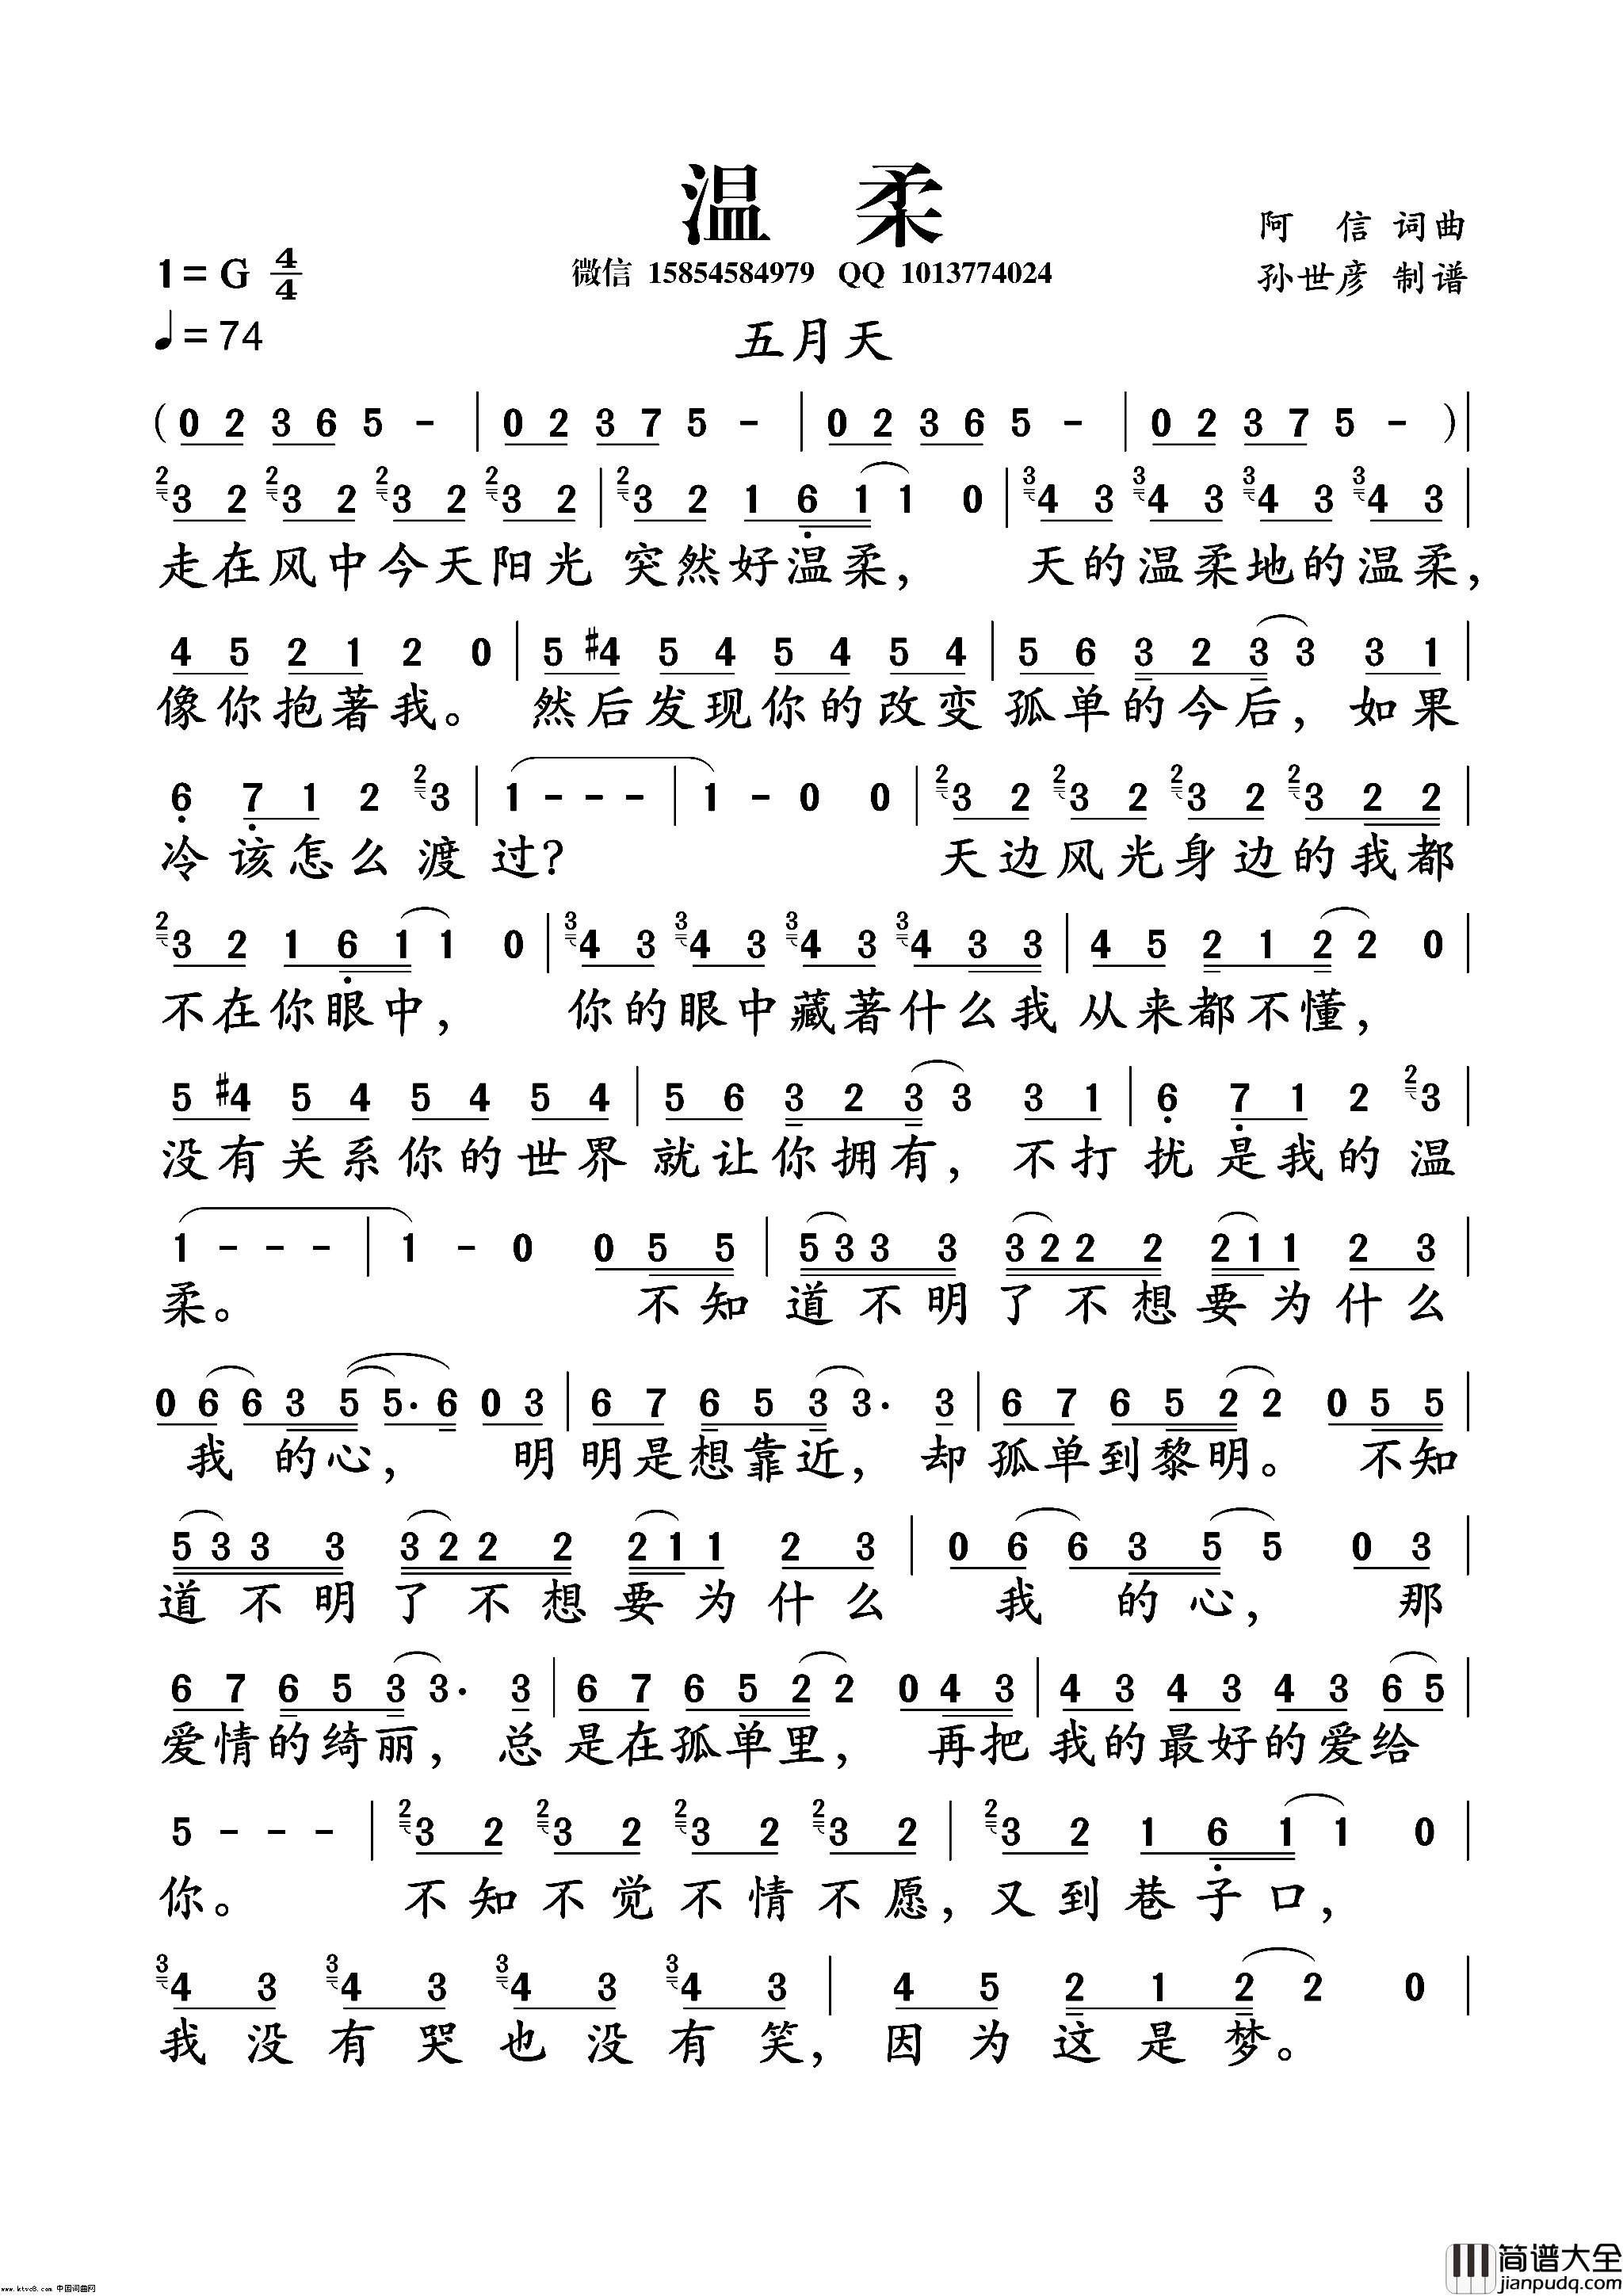 温 柔
阿 信 词曲
1=G 4/4
微信 15854584979 QQ 1013774024
孙世彦 制谱
♩=74
五月天
(0 2 3 6 5 - | 0 2 3 7 5 - | 0 2 3 6 5 - | 0 2 3 7 5 - )|
2 3 2 2 3 2 2 3 2 2 3 2 | 2 3 2 1 6 1 1 0 | 3 4 3 3 4 3 3 4 3 3 4 3 |
走在风中今天阳光 突然好温柔, 天的温柔地的温柔,
4 5 2 1 2 0 | 5 #4 5 4 5 4 5 4 | 5 6 3 2 3 3 3 1 |
像你抱著我。 然后发现你的改变 孤单的今后, 如果
6 7 1 2 2 3 | 1 - - - | 1 - 0 0 | 2 3 2 2 3 2 2 3 2 2 3 2 2 |
冷该怎么渡过? 天边风光身边的我都
2 3 2 1 6 1 1 0 | 3 4 3 3 4 3 3 4 3 3 4 3 3 | 4 5 2 1 2 2 0 |
不在你眼中, 你的眼中藏著什么我 从来都不懂,
5 #4 5 4 5 4 5 4 | 5 6 3 2 3 3 3 1 | 6 7 1 2 2 3 |
没有关系你的世界 就让你拥有, 不打 扰是我的温
1 - - - | 1 - 0 0 5 5 | 5 3 3 3 3 2 2 2 2 1 1 2 3 |
柔。 不知 道不明了不想要为什么
0 6 6 3 5 5· 6 0 3 | 6 7 6 5 3 3· 3 | 6 7 6 5 2 2 0 5 5 |
我 的心, 明 明是想靠近, 却 孤单到黎明。 不知
5 3 3 3 3 2 2 2 2 1 1 2 3 | 0 6 6 3 5 5 0 3 |
道不明了不想要为什么 我 的心, 那
6 7 6 5 3 3· 3 | 6 7 6 5 2 2 0 4 3 | 4 3 4 3 4 3 6 5 |
爱情的绮丽, 总 是在孤单里, 再把 我的最好的爱给
5 - - - | 2 3 2 2 3 2 2 3 2 2 3 2 | 2 3 2 1 6 1 1 0 |
你。 不知不觉不情不愿, 又到巷子口,
3 4 3 3 4 3 3 4 3 3 4 3 | 4 5 2 1 2 2 0 |
我没有哭也没有笑, 因为这是梦。
简谱大全
jianpudq.com
www.ktvc8.com 中国词曲网